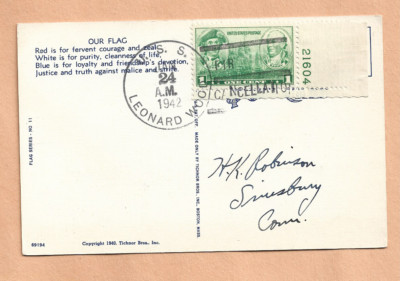 OUR FLAG
Red is for fervent courage and zeal,
White is for purity, cleanness of life,
Blue is for loyalty and friendship's devotion,
Justice and truth against malice and strife.
U.S.S.
24
A.M.
1942
LEONARD WOOD
UNITED STATES POSTAGE
1
CANCELLATION
21604
FLAG SERIES - NO. 11
MADE ONLY BY TICHNOR BROS., INC., BOSTON, MASS.
H.K. Robinson
Simsbury
Conn.
69194
Copyright 1940, Tichnor Bros., Inc.